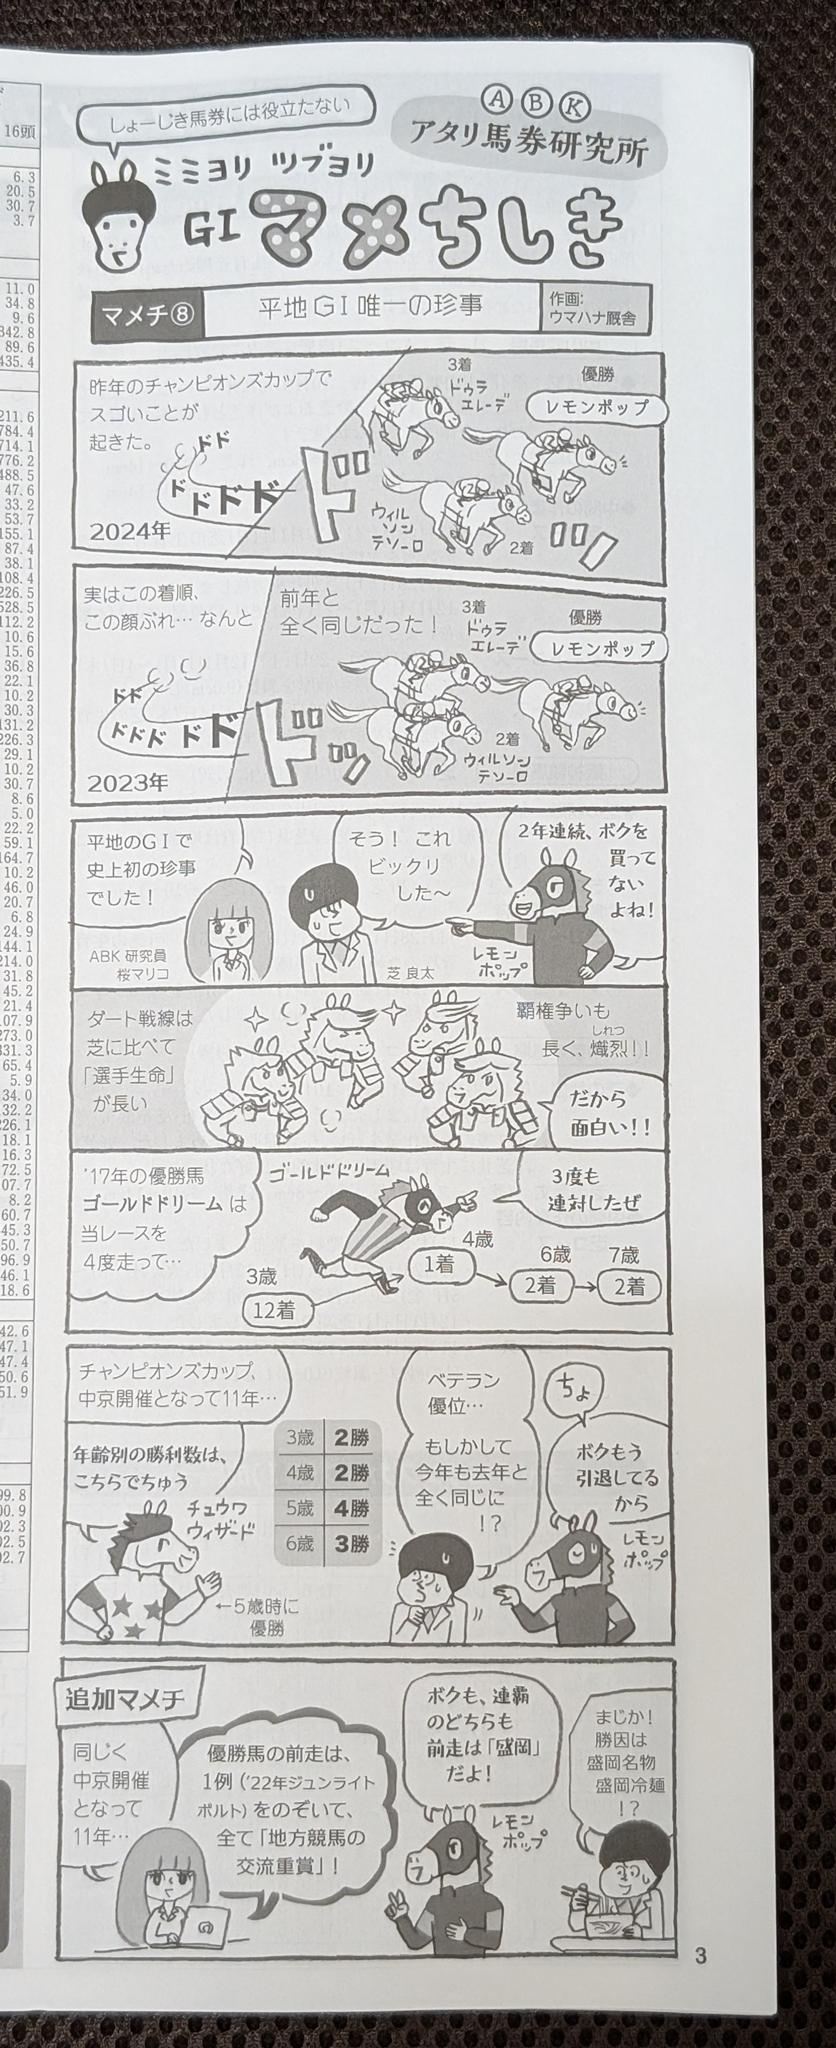 16頭
6.3
20.5
30.7
3.7
11.0
34.8
9.6
342.8
89.6
435.4
211.6
784.4
714.1
776.2
488.5
47.6
33.2
53.7
155.1
87.4
38.1
108.4
226.5
528.5
112.2
10.6
15.6
36.8
22.1
10.2
30.3
131.2
226.3
29.1
10.2
30.7
8.6
5.0
22.2
59.1
164.7
10.2
46.0
20.7
6.8
124.9
144.1
214.0
31.8
45.2
21.4
107.9
273.0
331.3
65.4
5.9
34.0
132.2
226.1
18.1
16.3
172.5
07.7
8.2
60.7
45.3
50.7
96.9
46.1
18.6
42.6
47.1
47.4
50.6
51.9
99.8
00.9
02.3
02.5
02.7
しょーじき馬券には役立たない
ABK
アタリ馬券研究所
ミミヨリ ツブヨリ
GI マメちしき
マメチ⑧
平地GI唯一の珍事
作画:
ウマハナ厩舎
昨年のチャンピオンズカップで
スゴいことが
起きた。
ドド
ドドドド
ドドドッ
2024年
3着
ドゥラ
エレーデ
優勝
レモンポップ
ウィル
ソン
テソーロ
2着
実はこの着順、
この顔ぶれ…なんと
前年と
全く同じだった!
3着
ドゥラ
エレーデ
優勝
レモンポップ
2着
ウィルソン
テソーロ
ドド
ドドドドド
ドドッ
2023年
平地のGIで
史上初の珍事
でした!
ABK研究員
桜マリコ
そう! これ
ビックリ
した〜
芝 良太
2年連続、ボクを
買って
ない
よね!
レモン
ポップ
ダート戦線は
芝に比べて
「選手生命」
が長い
覇権争いも
しれつ
長く、熾烈!!
だから
面白い!!
'17年の優勝馬
ゴールドドリームは
当レースを
4度走って…
ゴールドドリーム
3度も
連対したぜ
3歳
12着
4歳
1着
6歳
2着
7歳
2着
チャンピオンズカップ、
中京開催となって11年…
年齢別の勝利数は、
こちらでちゅう
チュウワ
ウィザード
←5歳時に
優勝
3歳 2勝
4歳 2勝
5歳 4勝
6歳 3勝
ベテラン
優位…
もしかして
今年も去年と
全く同じに
!?
ちょ
ボクもう
引退してる
から
レモン
ポップ
追加マメチ
同じく
中京開催
となって
11年…
優勝馬の前走は、
1例('22年ジュンライト
ボルト)をのぞいて、
全て「地方競馬の
交流重賞」!
ボクも、連覇
のどちらも
前走は「盛岡」
だよ!
レモン
ポップ
まじか!
勝因は
盛岡名物
盛岡冷麺
!?
3